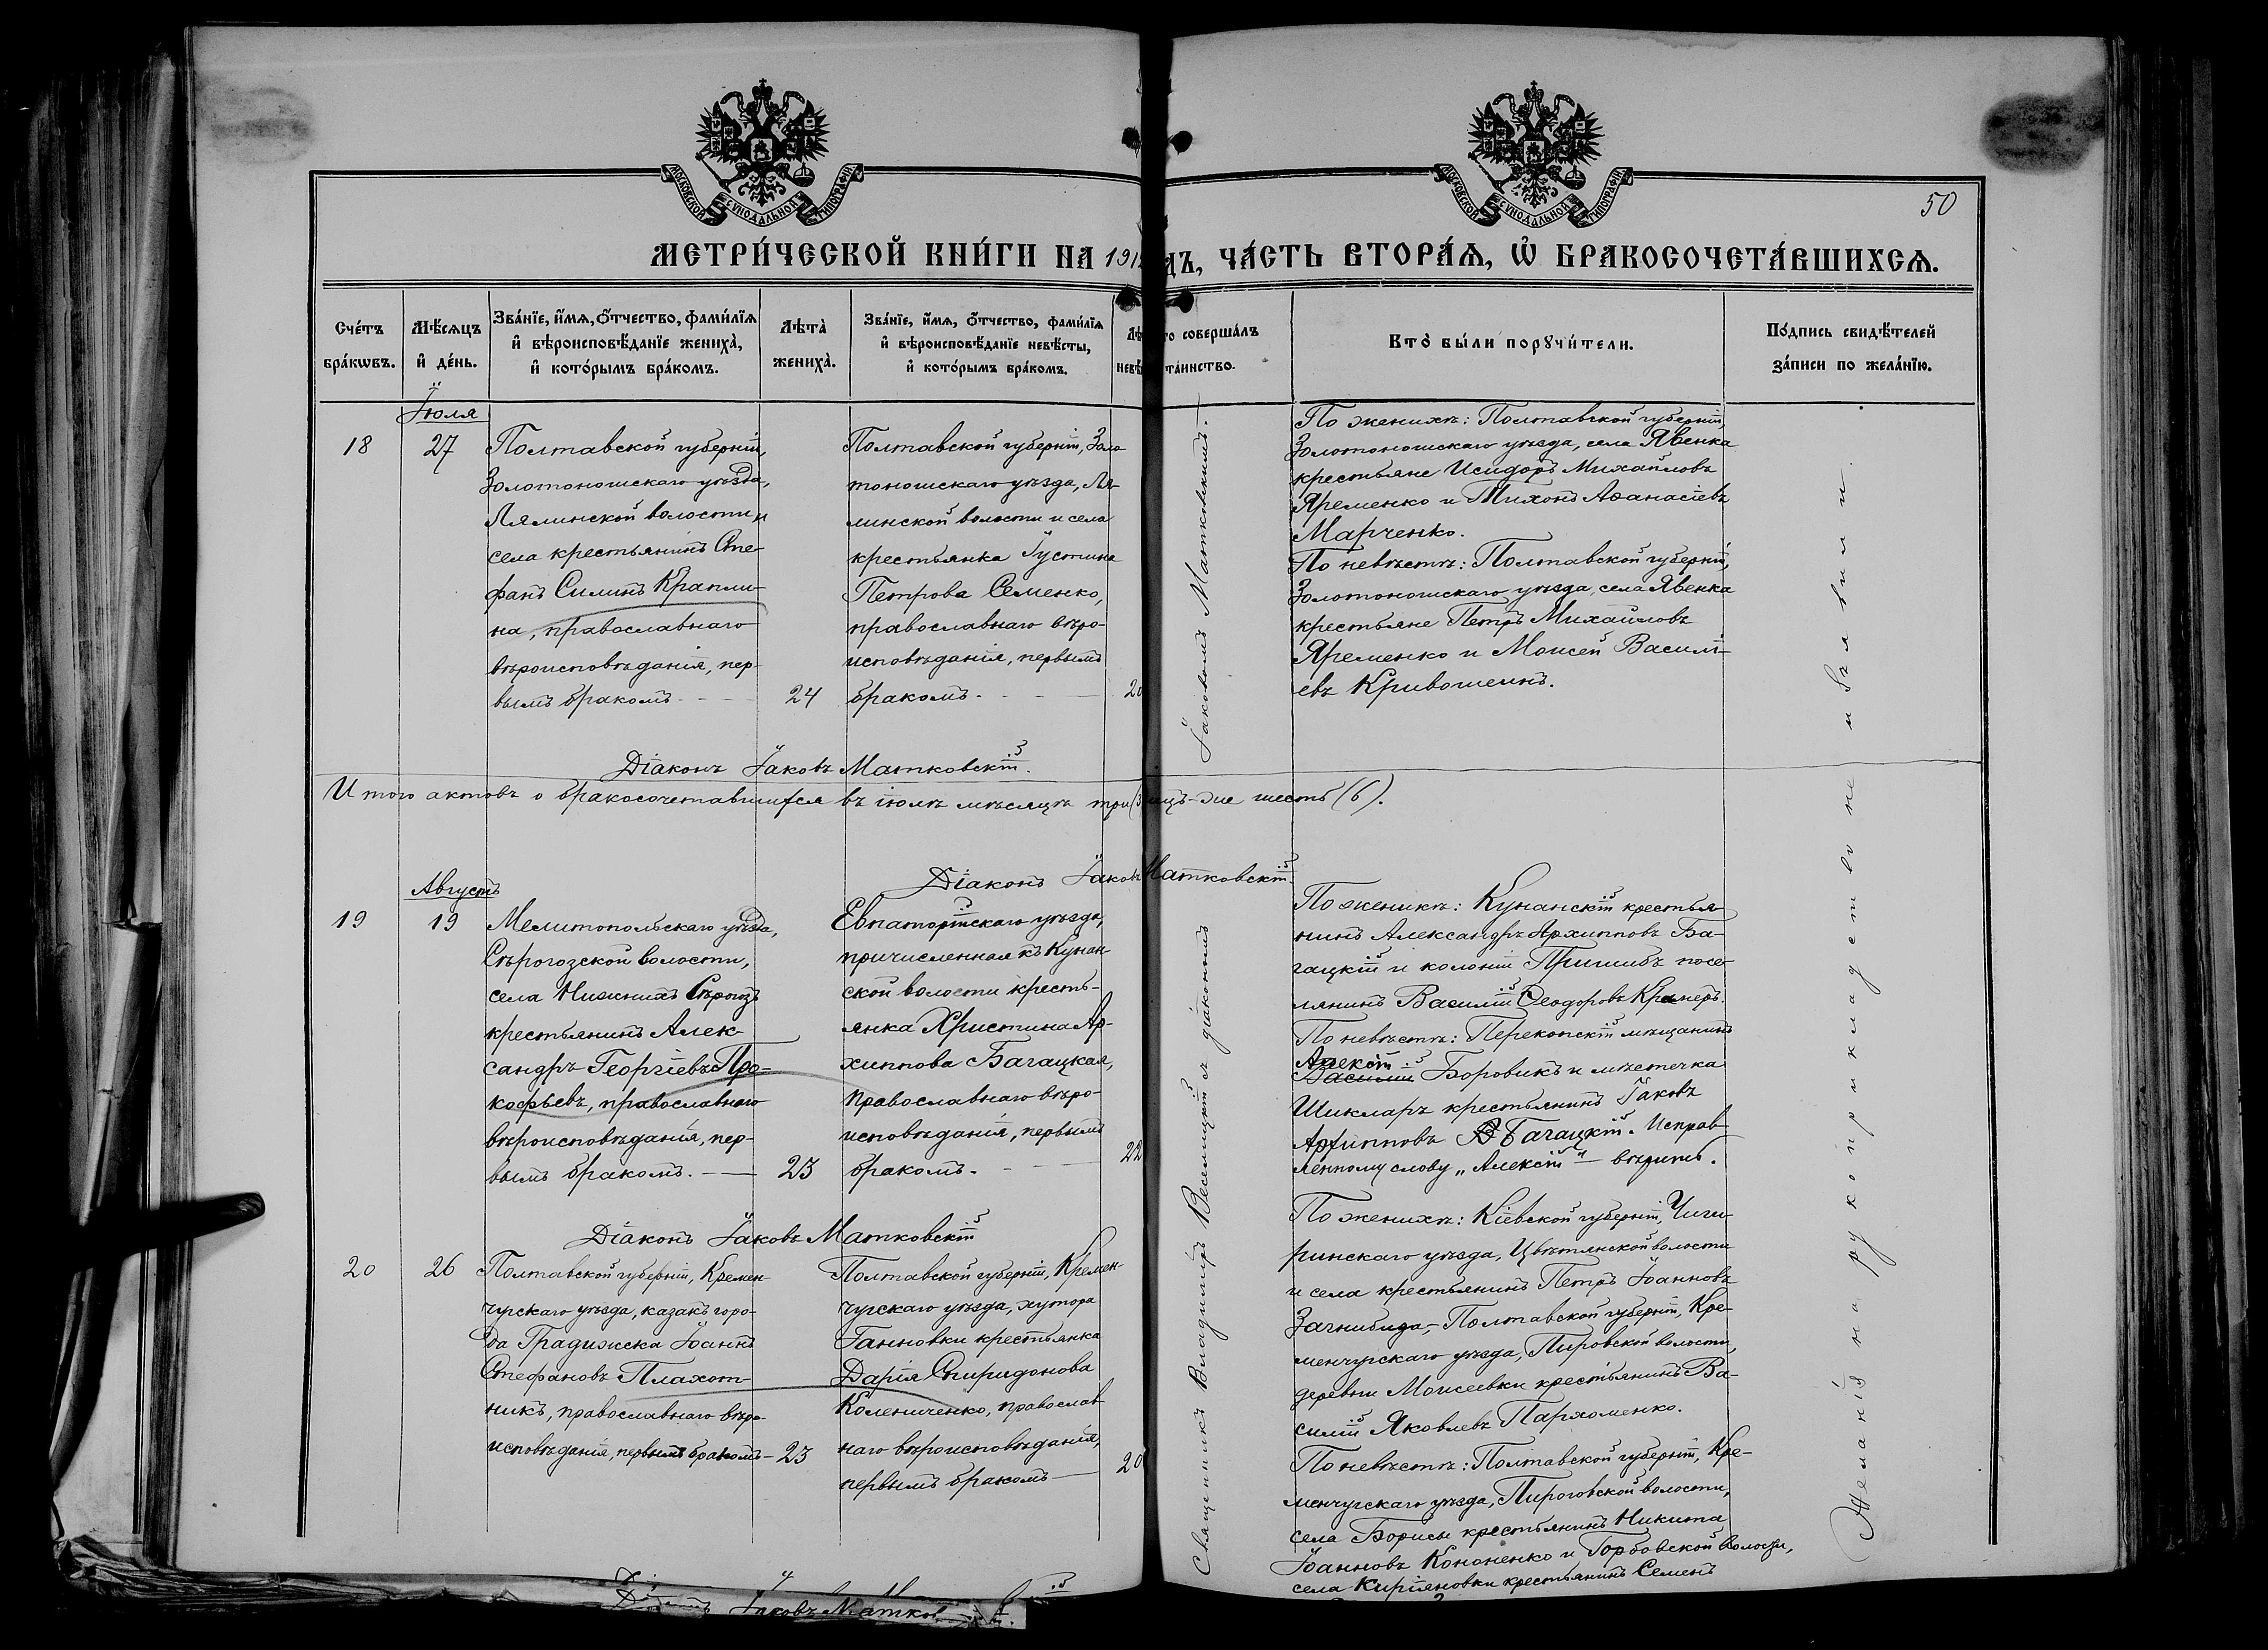 МОСКОВСКОЙ СѴНОДАЛЬНОЙ ТИПОГРАФІИ
МОСКОВСКОЙ СѴНОДАЛЬНОЙ ТИПОГРАФІИ
50
МЕТРИ́ЧЕСКОЙ КНИ́ГИ НА 191
ДЪ, ЧА́СТЬ ВТОРА́Ѧ, Ѽ БРАКОСОЧЕТА́ВШИХСѦ.
Сче́тъ
бра́кѡвъ.
Мѣ́сяцъ
и҆ де́нь.
Зва́нїе, и҆́мѧ, ѻ҆́тчество, фами́лїѧ
и҆ вѣроисповѣ́данїе жениха̀,
и҆ кото́рымъ бра́комъ.
Лѣта̀
жениха̀.
Зва́нїе, и҆́мѧ, ѻ҆́тчество, фами́лїѧ
и҆ вѣроисповѣ́данїе невѣ́сты,
и҆ кото́рымъ бра́комъ.
Лѣ
невѣ
то соверша́лъ
та́инство.
Кто̀ бы́ли порꙋчи́тели.
По́дпись свидѣ́телей
за́писи по жела́нїю.
Іюля
18
27
Полтавской губерніи,
Золотоношскаго уѣзда,
Лялинской волости и
села крестьянинъ Сте-
фанъ Силинъ Крапли-
на, православнаго
вѣроисповѣданія, пер-
вымъ бракомъ
24
Полтавской губерніи, Золо-
тоношскаго уѣзда, Ля-
линской волости и села
крестьянка Іустина
Петрова Семенко,
православнаго вѣро-
исповѣданія, первымъ
бракомъ.
20
По женихѣ: Полтавской губерніи,
Золотоношскаго уѣзда, села Явенка
крестьяне Исидоръ Михайловъ
Яременко и Тихонъ Аѳанасіевъ
Марченко.
По невѣстѣ: Полтавской губерніи,
Золотоношскаго уѣзда, села Явенка
крестьяне Петръ Михайловъ
Яременко и Моисей Василі-
евъ Кривошеинъ.
Діаконъ Іаковъ Матковскій.
Итого актовъ о бракосочетавшихся въ іюлѣ мѣсяцѣ три (3
ицъ-же шесть (6).
Діаконъ Іаковъ Матковскій.
Августъ
19
19
Мелитопольскаго уѣзда,
Сѣрогозской волости,
села Нижнихъ Сѣрогозъ
крестьянинъ Алек-
сандръ Георгіевъ Про-
кофьевъ, православнаго
вѣроисповѣданія, пер-
вымъ бракомъ.
23
Евпаторійскаго уѣзда,
причисленная къ Кунан-
ской волости кресть-
янка Христина Ар-
хиппова Багацкая,
православнаго вѣро-
исповѣданія, первымъ
бракомъ.
22
По женихѣ: Кунанскій крестья-
нинъ Александръ Архипповъ Ба-
гацкій и колоніи Пришибъ посе-
лянинъ Василій Ѳеодоровъ Крамеръ.
По невѣстѣ: Перекопскій мѣщанинъ
Алексій
Василий Боровикъ и мѣстечка
Шикларъ крестьянинъ Іаковъ
Архипповъ Багацкій. Исправ-
ленному слову „Алексій“ — вѣрить.
Діаконъ Іаковъ Матковскій
20
26
Полтавской губерніи, Кремен-
чугскаго уѣзда, казакъ горо-
да Градижска Іоаннъ
Стефановъ Плахот-
никъ, православнаго вѣро-
исповѣданія, первымъ бракомъ
23
Полтавской губерніи, Кремен-
чугскаго уѣзда, хутора
Ганновки крестьянка
Дарія Спиридонова
Колениченко, православ-
наго вѣроисповѣданія,
первымъ бракомъ
20
По женихѣ: Кіевской губерніи, Чиги-
ринскаго уѣзда, Цвѣтянской волости
и села крестьянинъ Петръ Іоанновъ
Загнибида, Полтавской губерніи, Кре-
менчугскаго уѣзда, Пировской волости,
деревни Моисеевки крестьянинъ Ва-
силій Яковлевъ Пархоменко.
По невѣстѣ: Полтавской губерніи, Кре-
менчугскаго уѣзда, Пироговской волости,
села Борисы крестьянинъ Никита
Іоанновъ Кононенко и Горбовской волости,
села Киріяновки крестьянинъ Семенъ
Священникъ Владиміръ Веселицкій и діакономъ Іаковомъ Матковскимъ.
Желанія на рукоприкладство не изъявили.
Іаковъ Матков